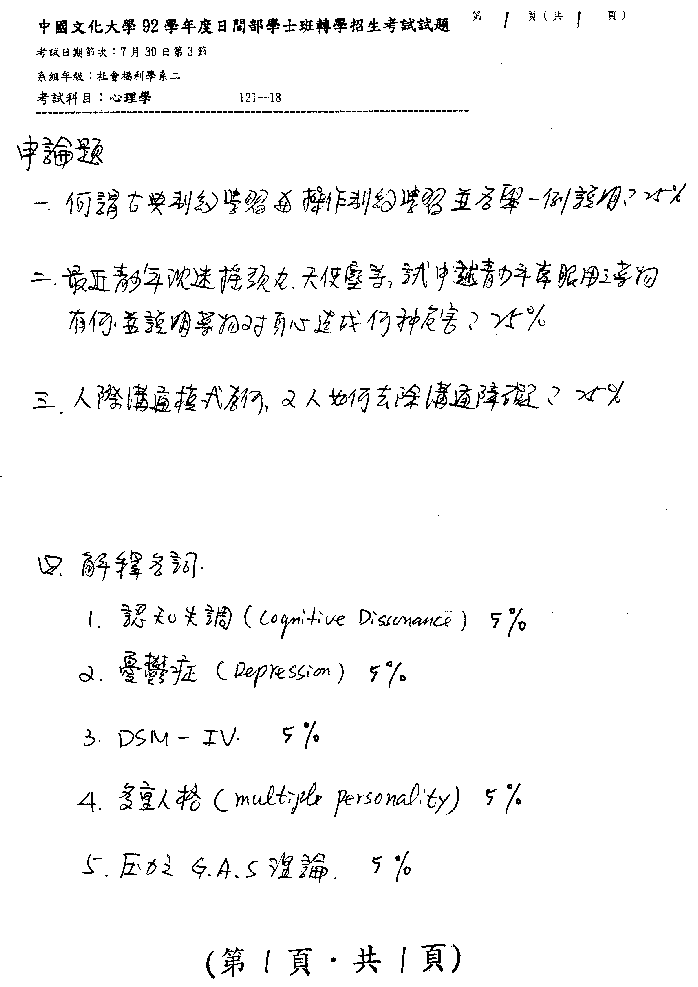 中國文化大學92學年度日間部學士班轉學招生考試試題 第1頁(共1頁)
考試日期節次：7月30日第3節
系組年級：社會福利學系二
考試科目：心理學 121--18
申論題
一. 何謂古典制約學習與操作制約學習並各舉一例說明？25%
二. 最近青少年沈迷搖頭丸、天使塵等，試申述青少年常服用之藥物
有何，並說明藥物對身心造成何種危害？25%
三. 人際溝通模式為何，又人如何去除溝通障礙？25%
四. 解釋名詞.
1. 認知失調 (Cognitive Dissonance) 5%
2. 憂鬱症 (Depression) 5%
3. DSM-IV. 5%
4. 多重人格 (multiple personality) 5%
5. 压力之 G.A.S 理論. 5%
(第1頁·共1頁)